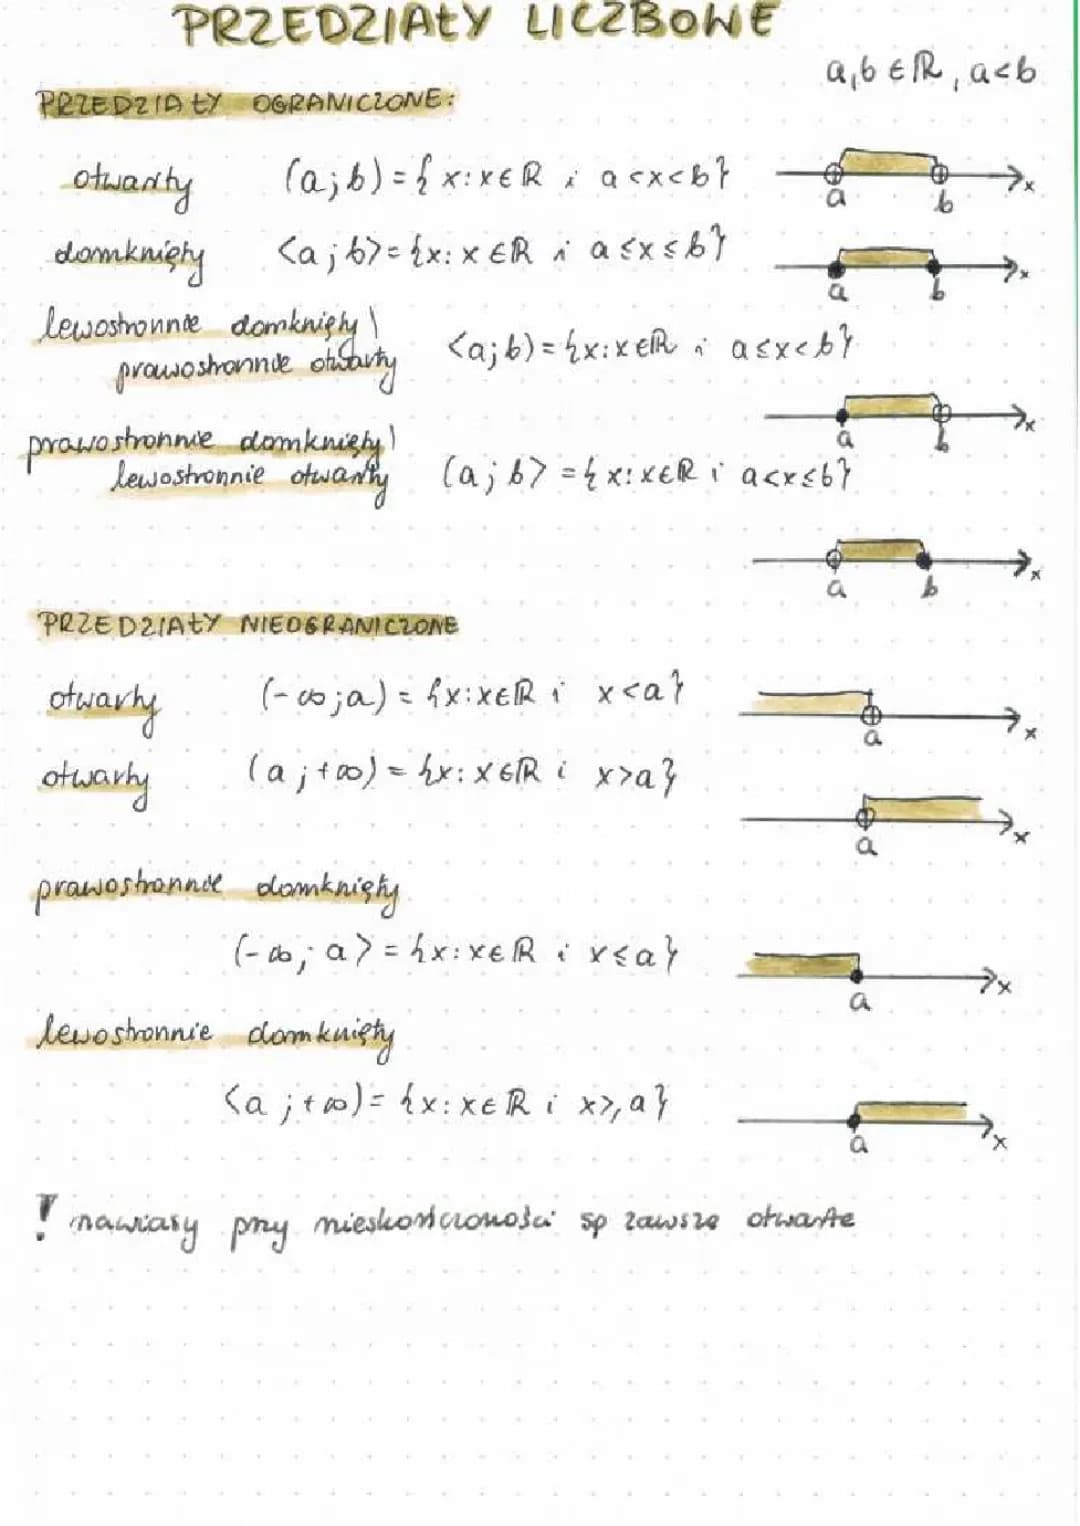 PRZEDZIAŁY LICZBOWE
a,b ∈ ℝ, a<b
PRZEDZIAŁY OGRANICZONE:
otwarty (a;b) = {x: x∈ℝ i a<x<b}
x
a b
domknięty <a;b> = {x: x∈ℝ i a≤x≤b}
x
a b
lewostronnie domknięty \
prawostronnie otwarty <a;b) = {x: x∈ℝ i a≤x<b}
x
a b
prawostronnie domknięty \
lewostronnie otwarty (a;b> = {x: x∈ℝ i a<x≤b}
x
a b
PRZEDZIAŁY NIEOGRANICZONE
otwarty (-∞;a) = {x: x∈ℝ i x<a}
x
a
otwarty (a;+∞) = {x: x∈ℝ i x>a}
x
a
prawostronnie domknięty
(-∞;a> = {x: x∈ℝ i x≤a}
x
a
lewostronnie domknięty
<a;+∞) = {x: x∈ℝ i x≥a}
x
a
! nawiasy przy nieskończoności są zawsze otwarte